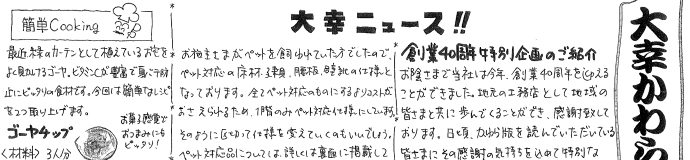 大幸かわら
大幸ニュース!!
簡単Cooking
最近、緑のカーテンとして植えているお宅を
よく見かけるゴーヤ。ビタミンCが豊富で夏バテ防
止にピッタリの食材です。今回は簡単なレシピ
を2つ取り上げます。
ゴーヤチップ
お菓子感覚で
おつまみにも
ピッタリ!
〈材料〉3人分
お施主さまがペットを飼われていた方でしたので、
ペット対応の床材、建具、腰板、壁紙の仕様と
なっております。全てペット対応のものにするよりコストが
おさえられるため、1階のみペット対応仕様にしてい
そのように区切って仕様を変えていくのもいいでしょう。
ペット対応品については、詳しくは裏面に掲載して
創業40周年特別企画のご紹介
お陰さまで当社は今年、創業40周年を迎える
ことができました。地元の工務店として地域の
皆さまと共に歩んでくることができ、感謝致して
おります。日頃、かわら版を読んでいただいている
皆さまにその感謝の気持ちを込めて特別な